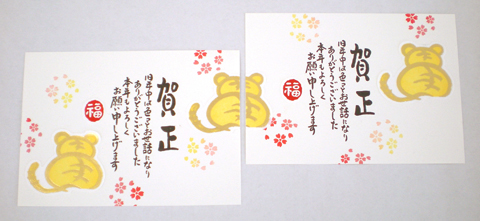 賀正
旧年中は色々とお世話になり
ありがとうございました
本年もよろしく
お願い申し上げます
福
賀正
旧年中は色々とお世話になり
ありがとうございました
本年もよろしく
お願い申し上げます
福